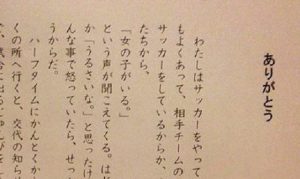 ありがとう
わたしはサッカーをやって
もよくあって、相手チームの
サッカーをしているからか、
たちから、
「女の子がいる。」
という声が聞こえてくる。はじ
か「うるさいな。」と思ったけ
んな事で怒っていたら、せっ
うからだ。
ハーフタイムにかんとくか
くの所へ行くと、交代の知らせ